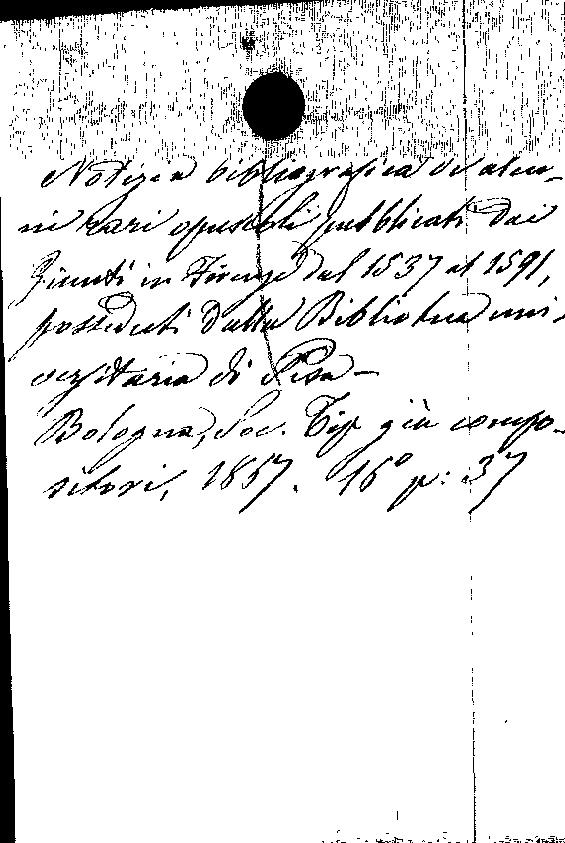 Notizia bibliografica di alcu-
ni rari opuscoli pubblicati dai
Giunti in Firenze dal 1537 al 1591,
posseduti dalla Biblioteca uni-
versitaria di Pisa —
Bologna, Soc. Tip già compo-
sitori, 1867. 16° p: 37